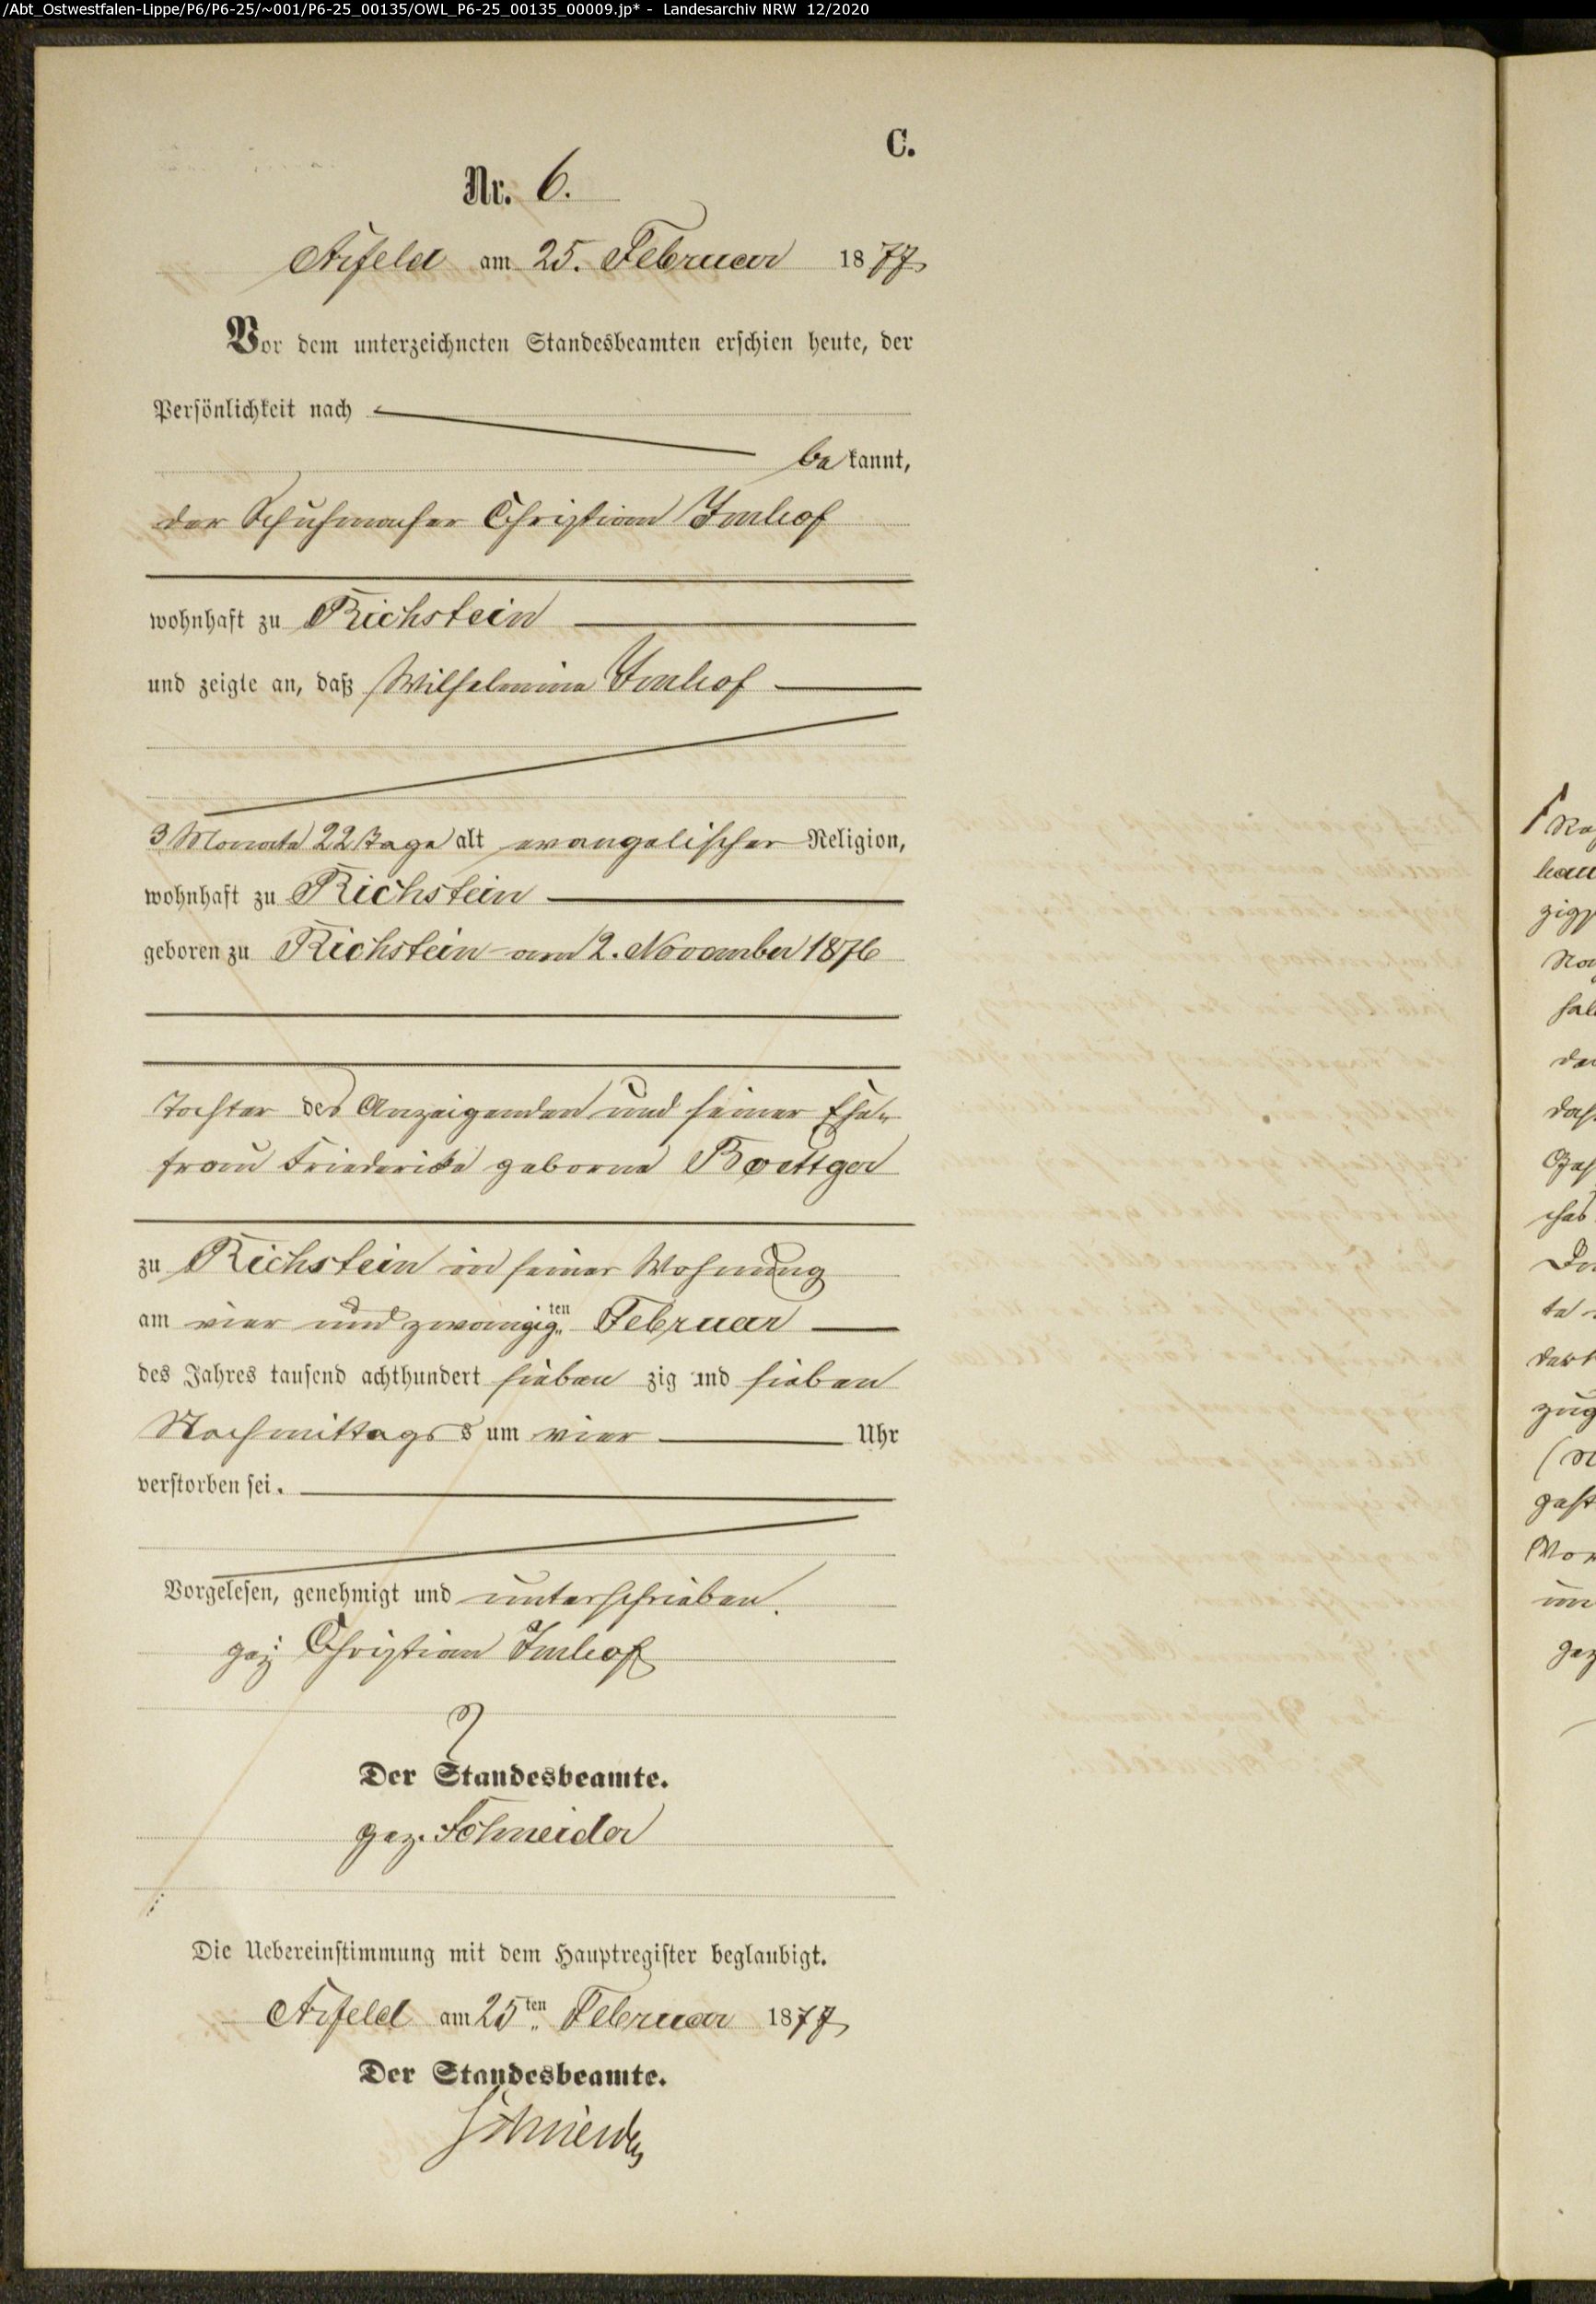 /Abt_Ostwestfalen-Lippe/P6/P6-25/~001/P6-25_00135/OWL_P6-25_00135_00009.jp* - Landesarchiv NRW 12/2020
C.
Nr. 6.
Arfeld am 25. Februar 1877
Vor dem unterzeichneten Standesbeamten erschien heute, der
Persönlichkeit nach
bekannt,
der Schuhmacher Christian Imhof
wohnhaft zu Richstein
und zeigte an, daß Wilhelmine Imhof
3 Monate 22 Tage alt evangelischer Religion,
wohnhaft zu Richstein
geboren zu Richstein am 2. November 1876
Tochter des Anzeigenden und seiner Ehe-
frau Friederike geborne Boettger
zu Richstein in seiner Wohnung
am vier und zwanzigten Februar
des Jahres tausend achthundert siebenzig und sieben
Nachmittags um vier Uhr
verstorben sei.
Vorgelesen, genehmigt und unterschrieben.
gez: Christian Imhof
Der Standesbeamte.
gez. Schneider
Die Uebereinstimmung mit dem Hauptregister beglaubigt.
Arfeld am 25ten Februar 1877
Der Standesbeamte.
Schneider